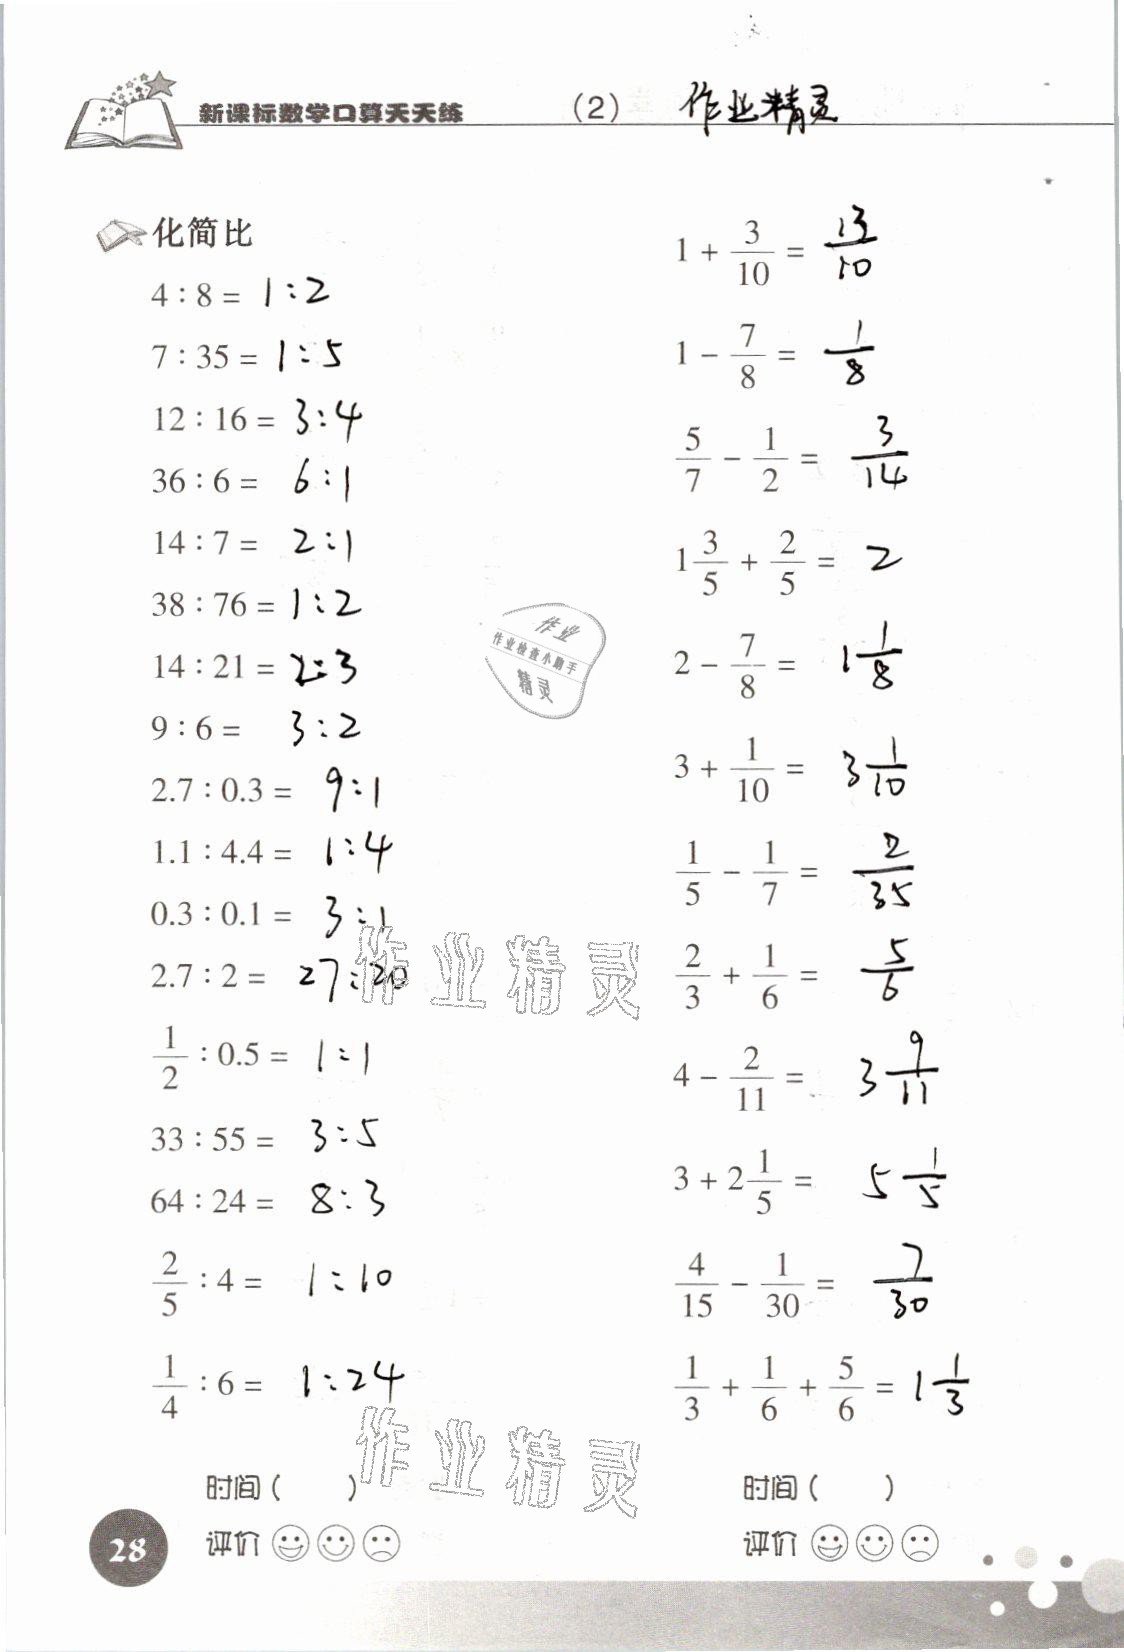 新课标数学口算天天练 (2) 作业精灵
化简比
4 : 8 = 1 : 2
7 : 35 = 1 : 5
12 : 16 = 3 : 4
36 : 6 = 6 : 1
14 : 7 = 2 : 1
38 : 76 = 1 : 2
14 : 21 = 2 : 3
9 : 6 = 3 : 2
2.7 : 0.3 = 9 : 1
1.1 : 4.4 = 1 : 4
0.3 : 0.1 = 3 : 1
2.7 : 2 = 27 : 20
1/2 : 0.5 = 1 : 1
33 : 55 = 3 : 5
64 : 24 = 8 : 3
2/5 : 4 = 1 : 10
1/4 : 6 = 1 : 24
时间 ( )
评价
1 + 3/10 = 13/10
1 - 7/8 = 1/8
5/7 - 1/2 = 3/14
1 3/5 + 2/5 = 2
2 - 7/8 = 1 1/8
3 + 1/10 = 3 1/10
1/5 - 1/7 = 2/35
2/3 + 1/6 = 5/6
4 - 2/11 = 3 9/11
3 + 2 1/5 = 5 1/5
4/15 - 1/30 = 7/30
1/3 + 1/6 + 5/6 = 1 1/3
时间 ( )
评价
作业
作业检查小助手
精灵
作业精灵
作业精灵
28